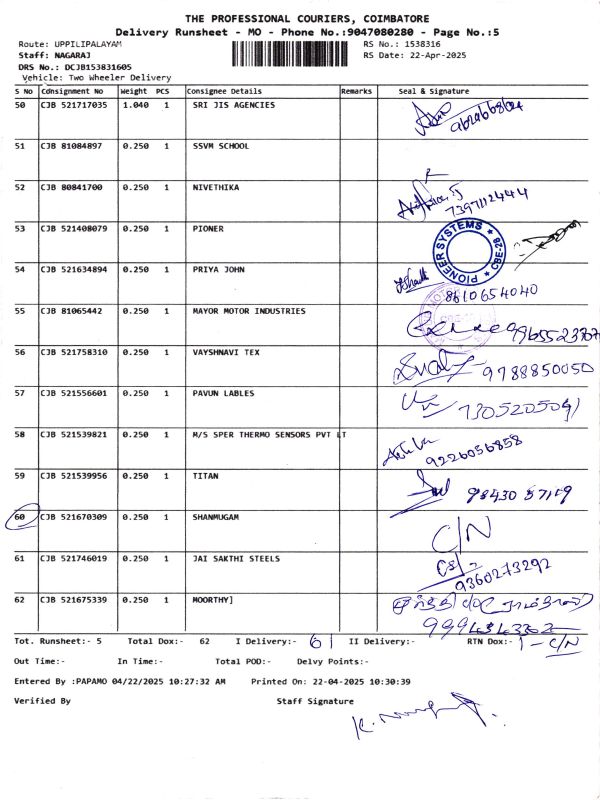 THE PROFESSIONAL COURIERS, COIMBATORE
Delivery Runsheet - MO - Phone No.:9047080280 - Page No.:5
Route: UPPILIPALAYAM RS No.: 1538316
Staff: NAGARAJ RS Date: 22-Apr-2025
DRS No.: DCJB153831605
Vehicle: Two Wheeler Delivery
S No Consignment No Weight PCS Consignee Details Remarks Seal & Signature
50 CJB 521717035 1.040 1 SRI JIS AGENCIES
51 CJB 81084897 0.250 1 SSVM SCHOOL
52 CJB 80841700 0.250 1 NIVETHIKA
7397112444
53 CJB 521408079 0.250 1 PIONER
PIONEER SYSTEMS ★ CBE-28 ★
54 CJB 521634894 0.250 1 PRIYA JOHN
8610654040
55 CJB 81065442 0.250 1 MAYOR MOTOR INDUSTRIES
56 CJB 521758310 0.250 1 VAYSHNAVI TEX
9788850050
57 CJB 521556601 0.250 1 PAVUN LABLES
58 CJB 521539821 0.250 1 M/S SPER THERMO SENSORS PVT LT
9226056858
59 CJB 521539956 0.250 1 TITAN
60 CJB 521670309 0.250 1 SHANMUGAM C/N
61 CJB 521746019 0.250 1 JAI SAKTHI STEELS
9360273292
62 CJB 521675339 0.250 1 MOORTHY]
Tot. Runsheet:- 5 Total Dox:- 62 I Delivery:- 61 II Delivery:- RTN Dox:- 1 - C/N
Out Time:- In Time:- Total POD:- Delvy Points:-
Entered By :PAPAMO 04/22/2025 10:27:32 AM Printed On: 22-04-2025 10:30:39
Verified By Staff Signature